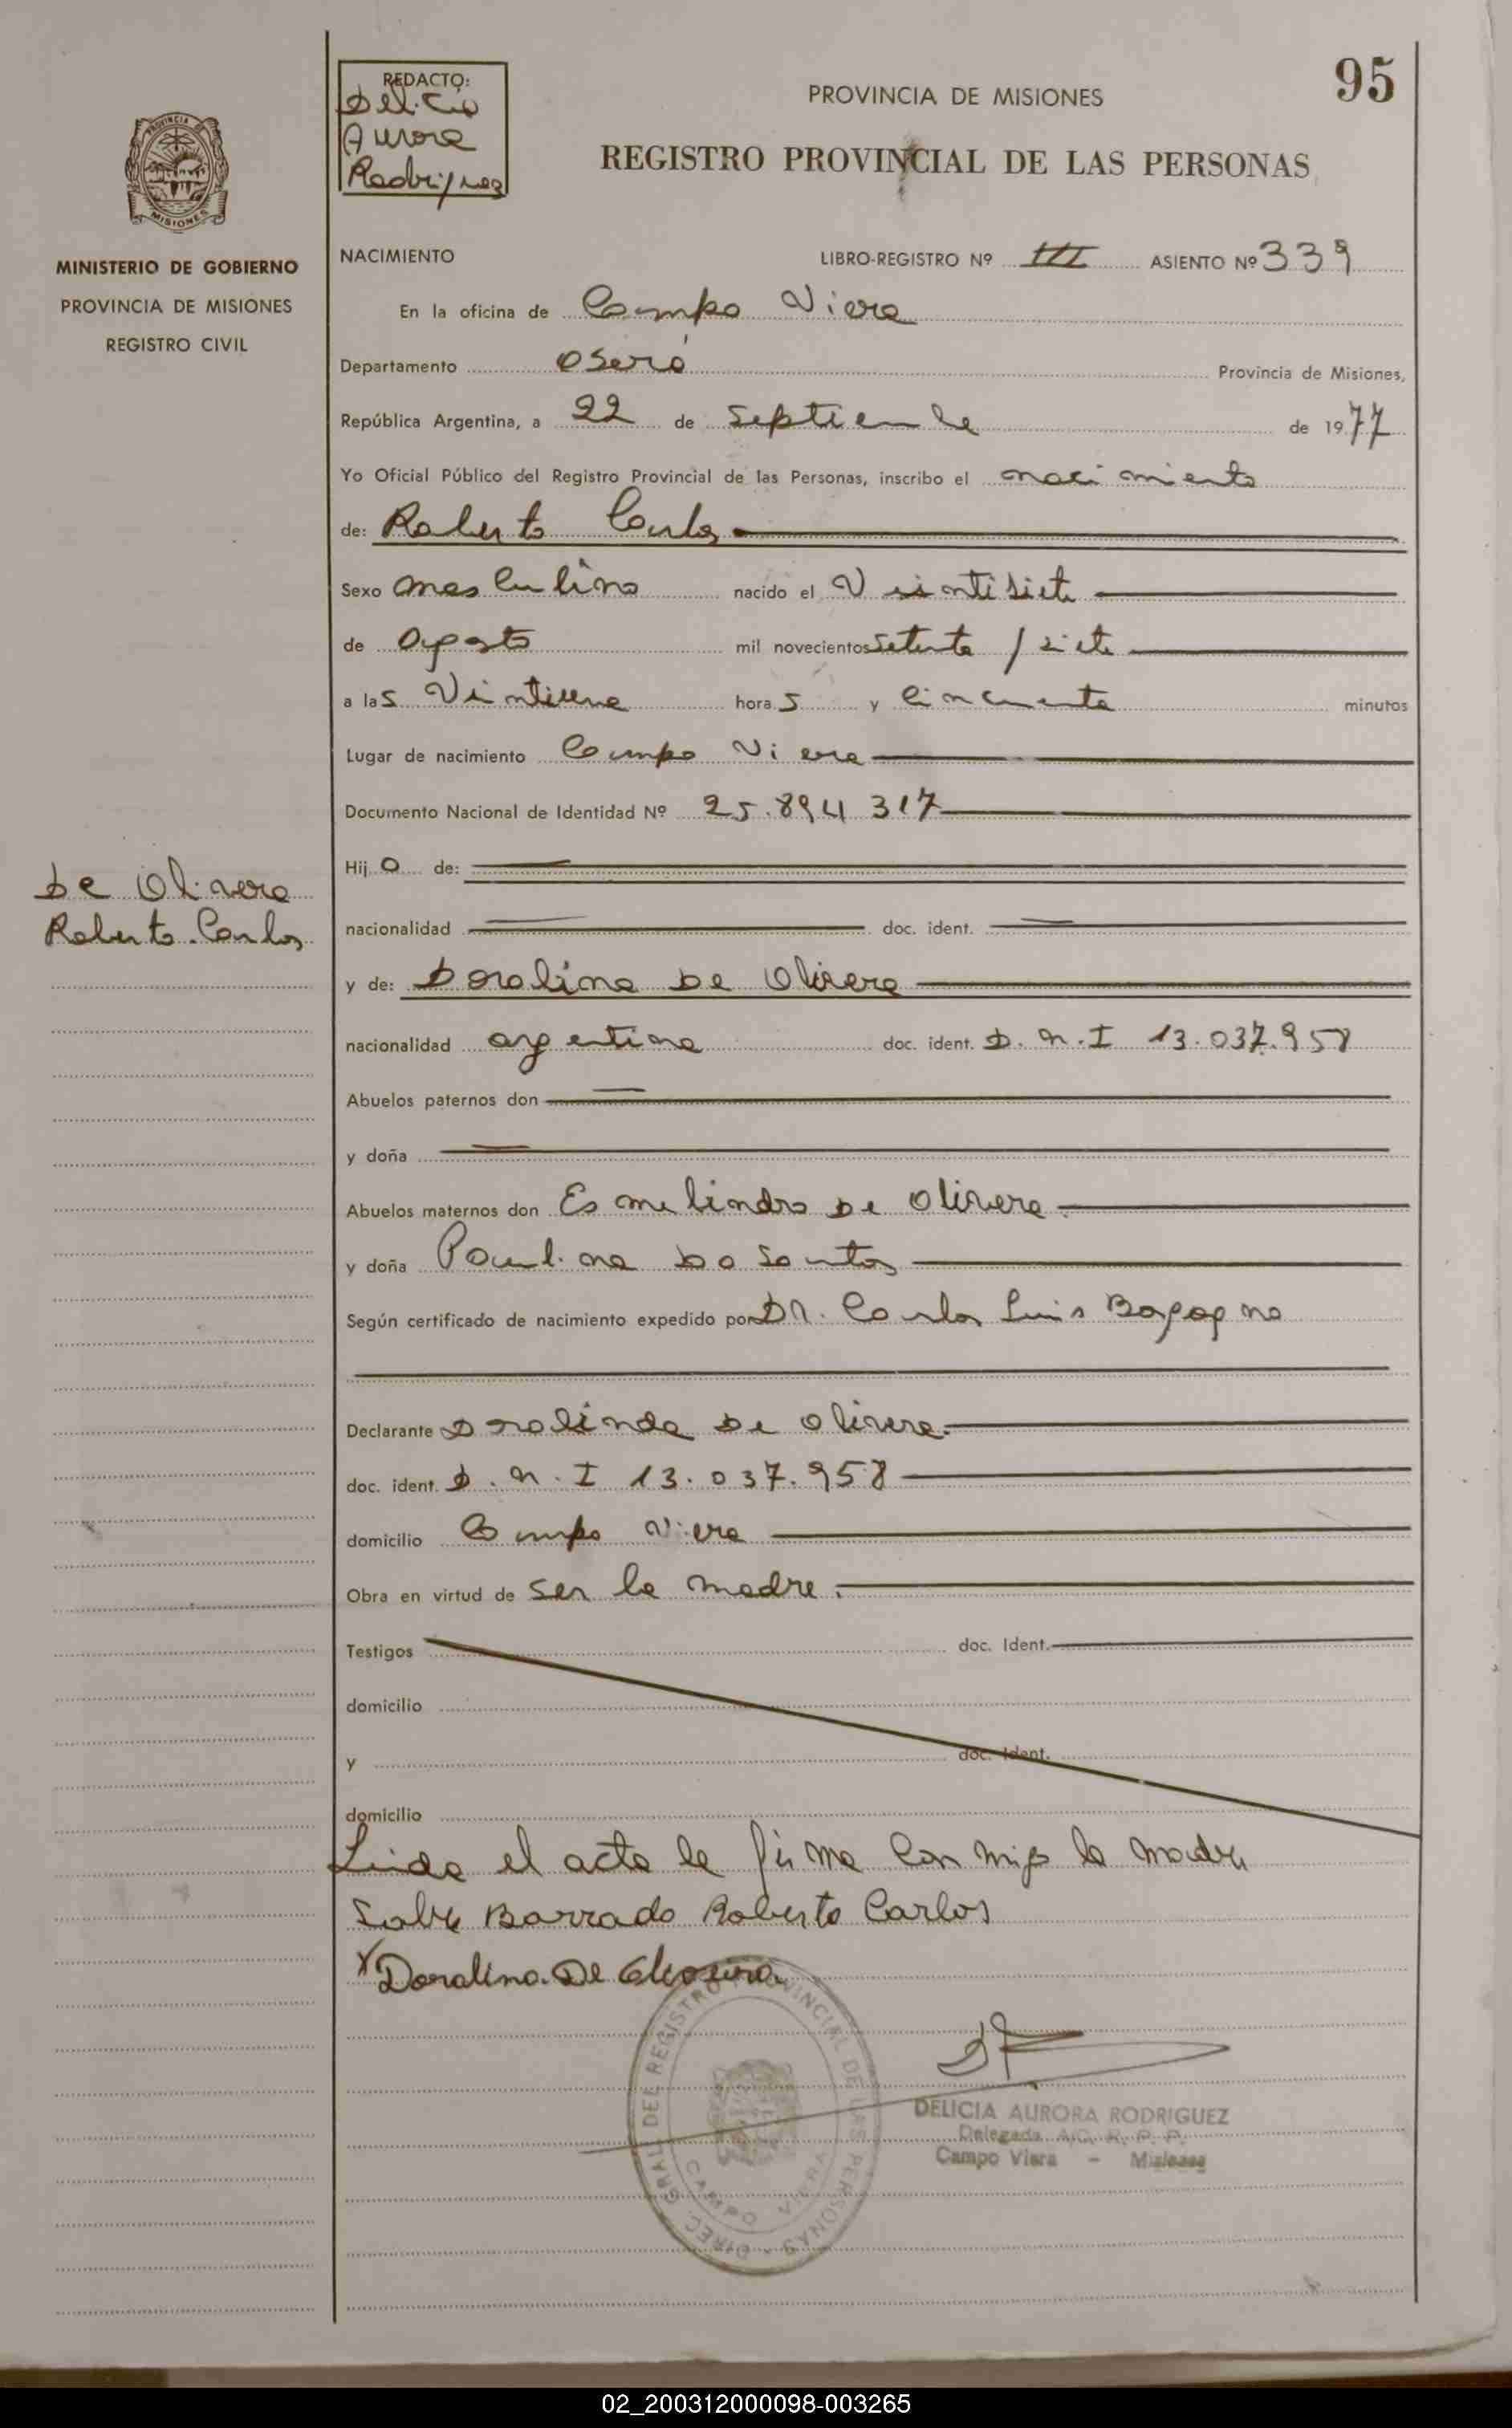 95
REDACTO:
Delicia
Aurora
Rodriguez
PROVINCIA DE MISIONES
REGISTRO PROVINCIAL DE LAS PERSONAS
PROVINCIA DE
MISIONES
MINISTERIO DE GOBIERNO
PROVINCIA DE MISIONES
REGISTRO CIVIL
NACIMIENTO LIBRO-REGISTRO Nº III ASIENTO Nº 339
En la oficina de Campo Viera
Departamento Oberá Provincia de Misiones,
República Argentina, a 22 de Septiembre de 1977
Yo Oficial Público del Registro Provincial de las Personas, inscribo el nacimiento
de: Roberto Carlos
Sexo masculino nacido el Veintisiete
de Agosto mil novecientos setenta y siete
a las Veintiuna horas y Cincuenta minutos
Lugar de nacimiento Campo Viera
Documento Nacional de Identidad Nº 25.894 317
Hijo de:
De Olivera
Roberto Carlos
nacionalidad doc. ident.
y de: Doralina De Olivera
nacionalidad argentina doc. ident. D.N.I 13.037.958
Abuelos paternos don
y doña
Abuelos maternos don Esmelindro De Olivera
y doña Paulina Do Santos
Según certificado de nacimiento expedido por Dr. Carlos Luis
Declarante Doralinda De Olivera
doc. ident. D.N.I 13.037.958
domicilio Campo Viera
Obra en virtud de ser la madre.
Testigos doc. Ident.
domicilio
y doc. Ident.
domicilio
Leida el acta la firma conmigo la madre
Sobre Barrado Roberto Carlos
X Doralina De Oliveira
DIREC. GRAL DEL REGISTRO PROVINCIAL DE LAS PERSONAS
CAMPO VIERA
DELICIA AURORA RODRIGUEZ
Delegada A/C. R. P. P.
Campo Viera - Misiones
02_200312000098-003265